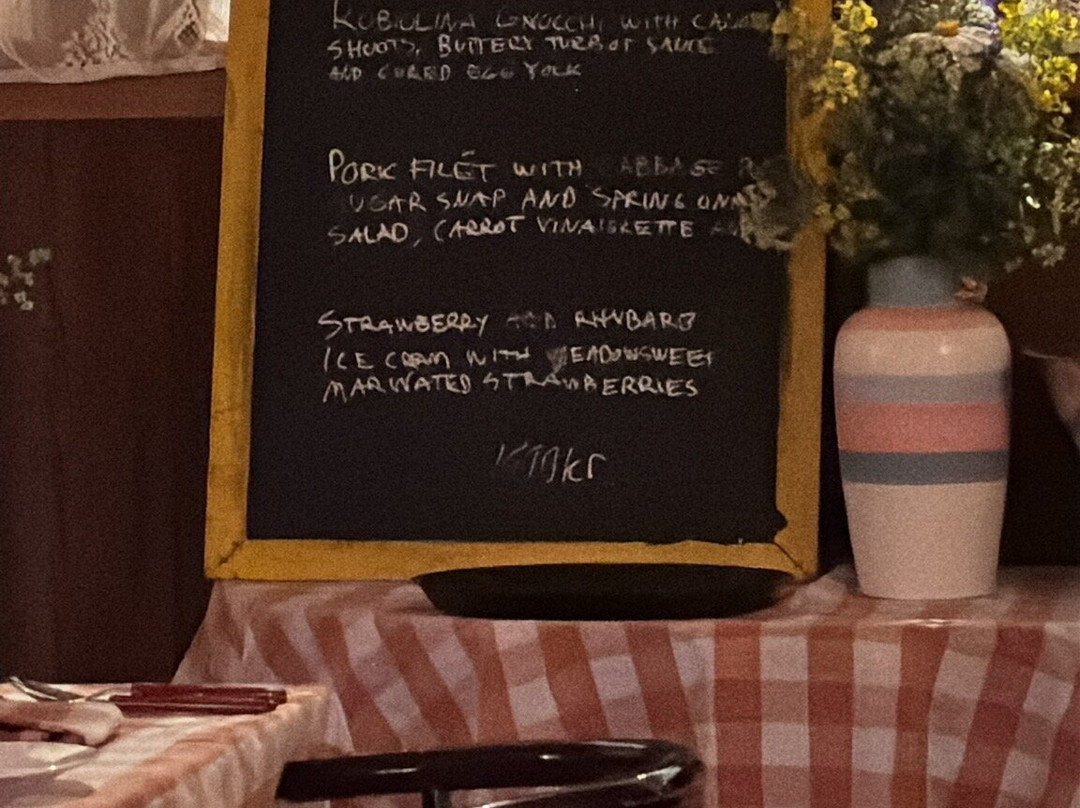 ROBIOLINA GNOCCHI WITH
SHOOTS, BUTTERY TURBOT SAUCE
AND CURED EGG YOLK
PORK FILÉT WITH ABBAGE
UGAR SNAP AND SPRING
SALAD, CARROT VINAIGRETTE
STRAWBERRY AND RHUBARB
ICE CREAM WITH MEADOWSWEET
MARINATED STRAWBERRIES